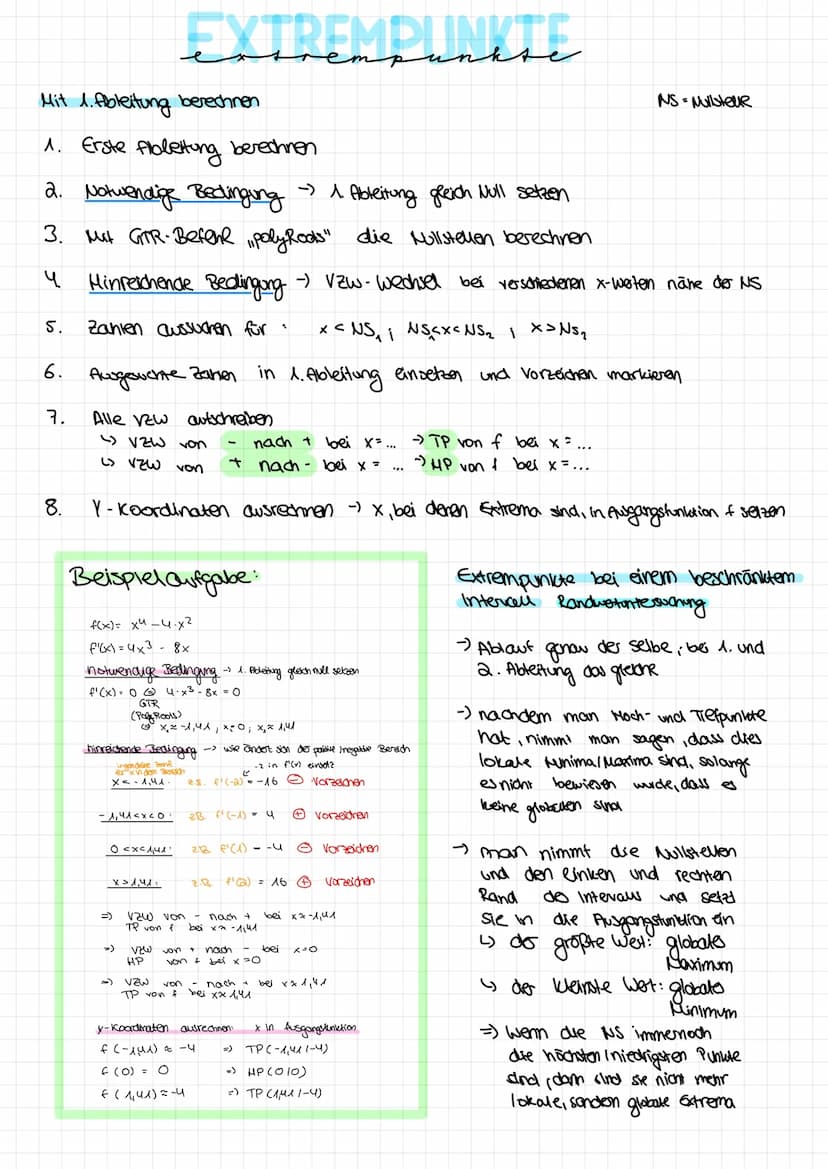 EXTREMPUNKTE
extrempunkte
Mit 1. Ableitung berechnen
NS = Nullstelle
1. Erste Ableitung berechnen
2. Notwendige Bedingung → 1 Ableitung gleich Null setzen
3. Mit GTR-Befehl „polyRoots" die Nullstellen berechnen
4 Hinreichende Bedingung → VZW-Wechsel bei verschiedenen x-Werten nähe der NS
5. Zahlen aussuchen für : x < NS₁ ; NS₁<x<NS₂ ; x>NS₂
6. Ausgesuchte Zahlen in 1. Ableitung einsetzen und Vorzeichen markieren
7. Alle VZW aufschreiben
↳ VZW von - nach + bei x=... → TP von f bei x = ...
↳ VZW von + nach - bei x = ... → HP von f bei x = ...
8. Y-Koordinaten ausrechnen → x, bei denen Extrema sind, in Ausgangsfunktion f setzen
Beispielaufgabe:
f(x)= x⁴ - 4·x²
f'(x) = 4x³ - 8x
notwendige Bedingung → 1. Ableitung gleich null setzen
f'(x) = 0 ⇔ 4·x³ - 8x = 0
GTR
(PolyRoots)
⇔ x₁≈ -1,41 , x₂=0 , x₃≈ 1,41
hinreichende Bedingung → wie ändert sich der positive/negative Bereich
irgendeine Zahl
für x in dem Bereich
-2 in f'(x) einsetz
x < -1,41: z.B. f'(-2) = -16 ⊖ Vorzeichen
-1,41<x<0: z.B f'(-1) = 4 ⊕ Vorzeichen
0<x<1,41: z.B. f'(1) = -4 ⊖ Vorzeichen
x>1,41: z.B f'(2) = 16 ⊕ Vorzeichen
⇒ VZW von - nach + bei x≈-1,41
TP von f bei x≈-1,41
⇒ VZW von + nach - bei x=0
HP von f bei x=0
⇒ VZW von - nach + bei x≈1,41
TP von f bei x≈1,41
y-Koordinaten ausrechnen: x in Ausgangsfunktion
f(-1,41) ≈ -4 ⇒ TP(-1,41/-4)
f(0) = 0 ⇒ HP(0/0)
f(1,41)≈-4 ⇒ TP(1,41/-4)
Extrempunkte bei einem beschränktem
Intervall Randwertuntersuchung
→ Ablauf genau der selbe; bei 1. und
2. Ableitung das gleiche
→ nachdem man Hoch- und Tiefpunkte
hat, nimmt man sagen, dass dies
lokale Minima/Maxima sind, solange
es nicht bewiesen wurde, dass es
keine globalen sind
→ man nimmt die Nullstellen
und den linken und rechten
Rand des Intervalls und setzt
sie in die Ausgangsfunktion ein
↳ der größte Wert: globales
Maximum
↳ der kleinste Wert: globales
Minimum
⇒ Wenn die NS immernoch
die höchsten/niedrigsten Punkte
sind, dann sind sie nicht mehr
lokale, sondern globale Extrema